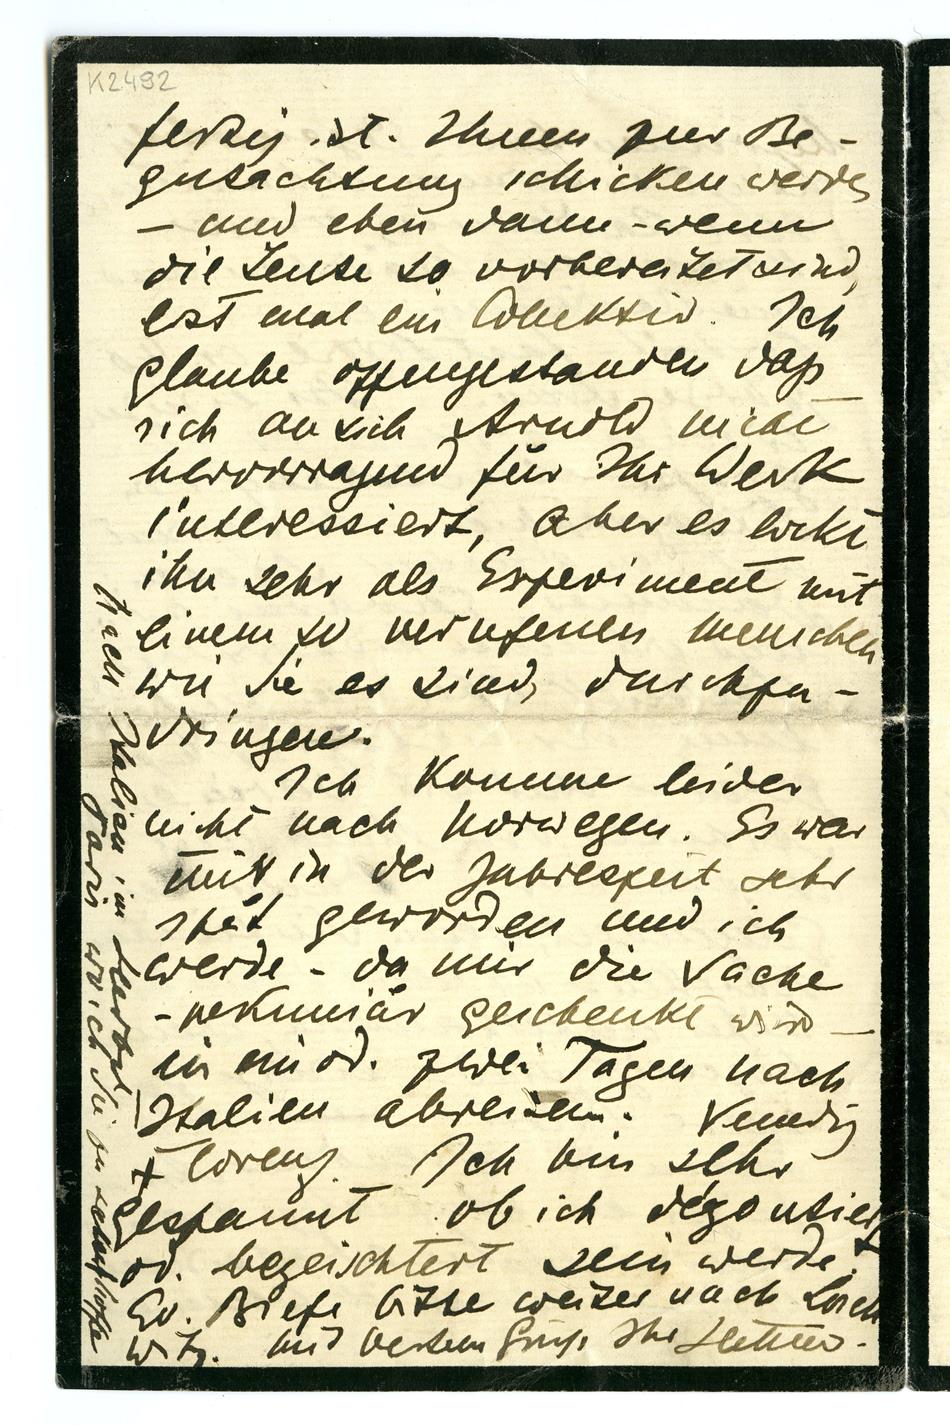 K2492
fertig ist. Ihnen zur Be-
gutachtung schicken werde,
– und eben dann – wenn
die Leute so vorbereitet sind,
erst mal ein Collektiv. Ich
glaube offengestanden daß
sich an sich Arnold nicht
hervorragend für Ihr Werk
interessiert, aber es lockt
ihn sehr als Experiment mit
einem so verrufenen Menschen
wie Sie es sind, durchzu-
dringen.
Ich komme leider
nicht nach Norwegen. Es war
mir in der Jahreszeit sehr
spät geworden und ich
werde – da mir die Sache
– pekuniär geschenkt wird –
in ein od. zwei Tagen nach
Italien abreisen. Venedig
Florenz. Ich bin sehr
gespannt ob ich dégoutiert
od. begeistert sein werde.
Ev. Briefe bitte weiter nach Losch
witz. Mit bestem Gruß Ihr Hettner.
Nach Italien im Herbst
Paris wo ich Sie zu sehen hoffe